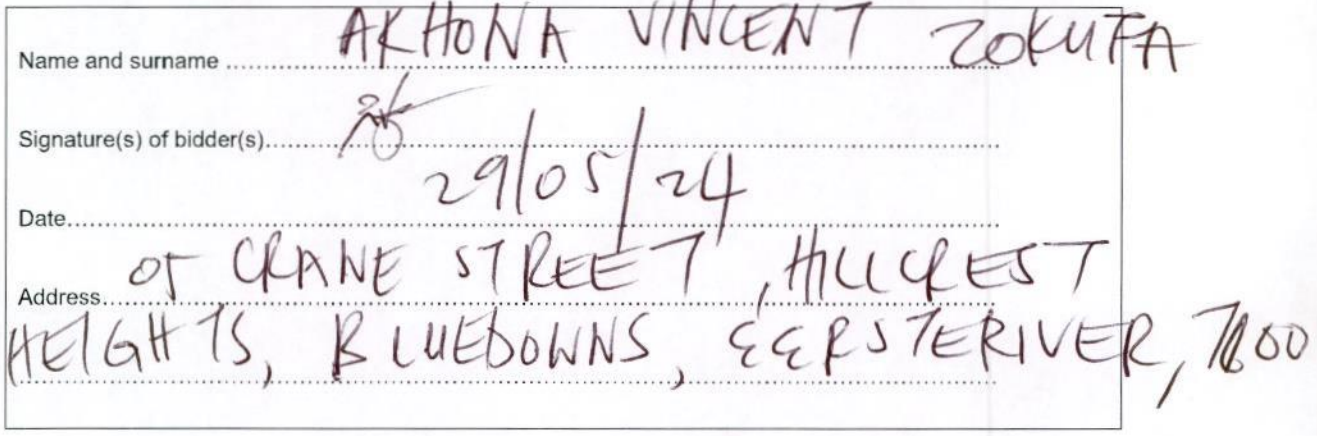 Name and surname AKHONA VINCENT ZOKUFA
Signature(s) of bidder(s)
Date 29/05/24
Address 05 CRANE STREET, HILLCREST
HEIGHTS, BLUEDOWNS, EERSTERIVER,